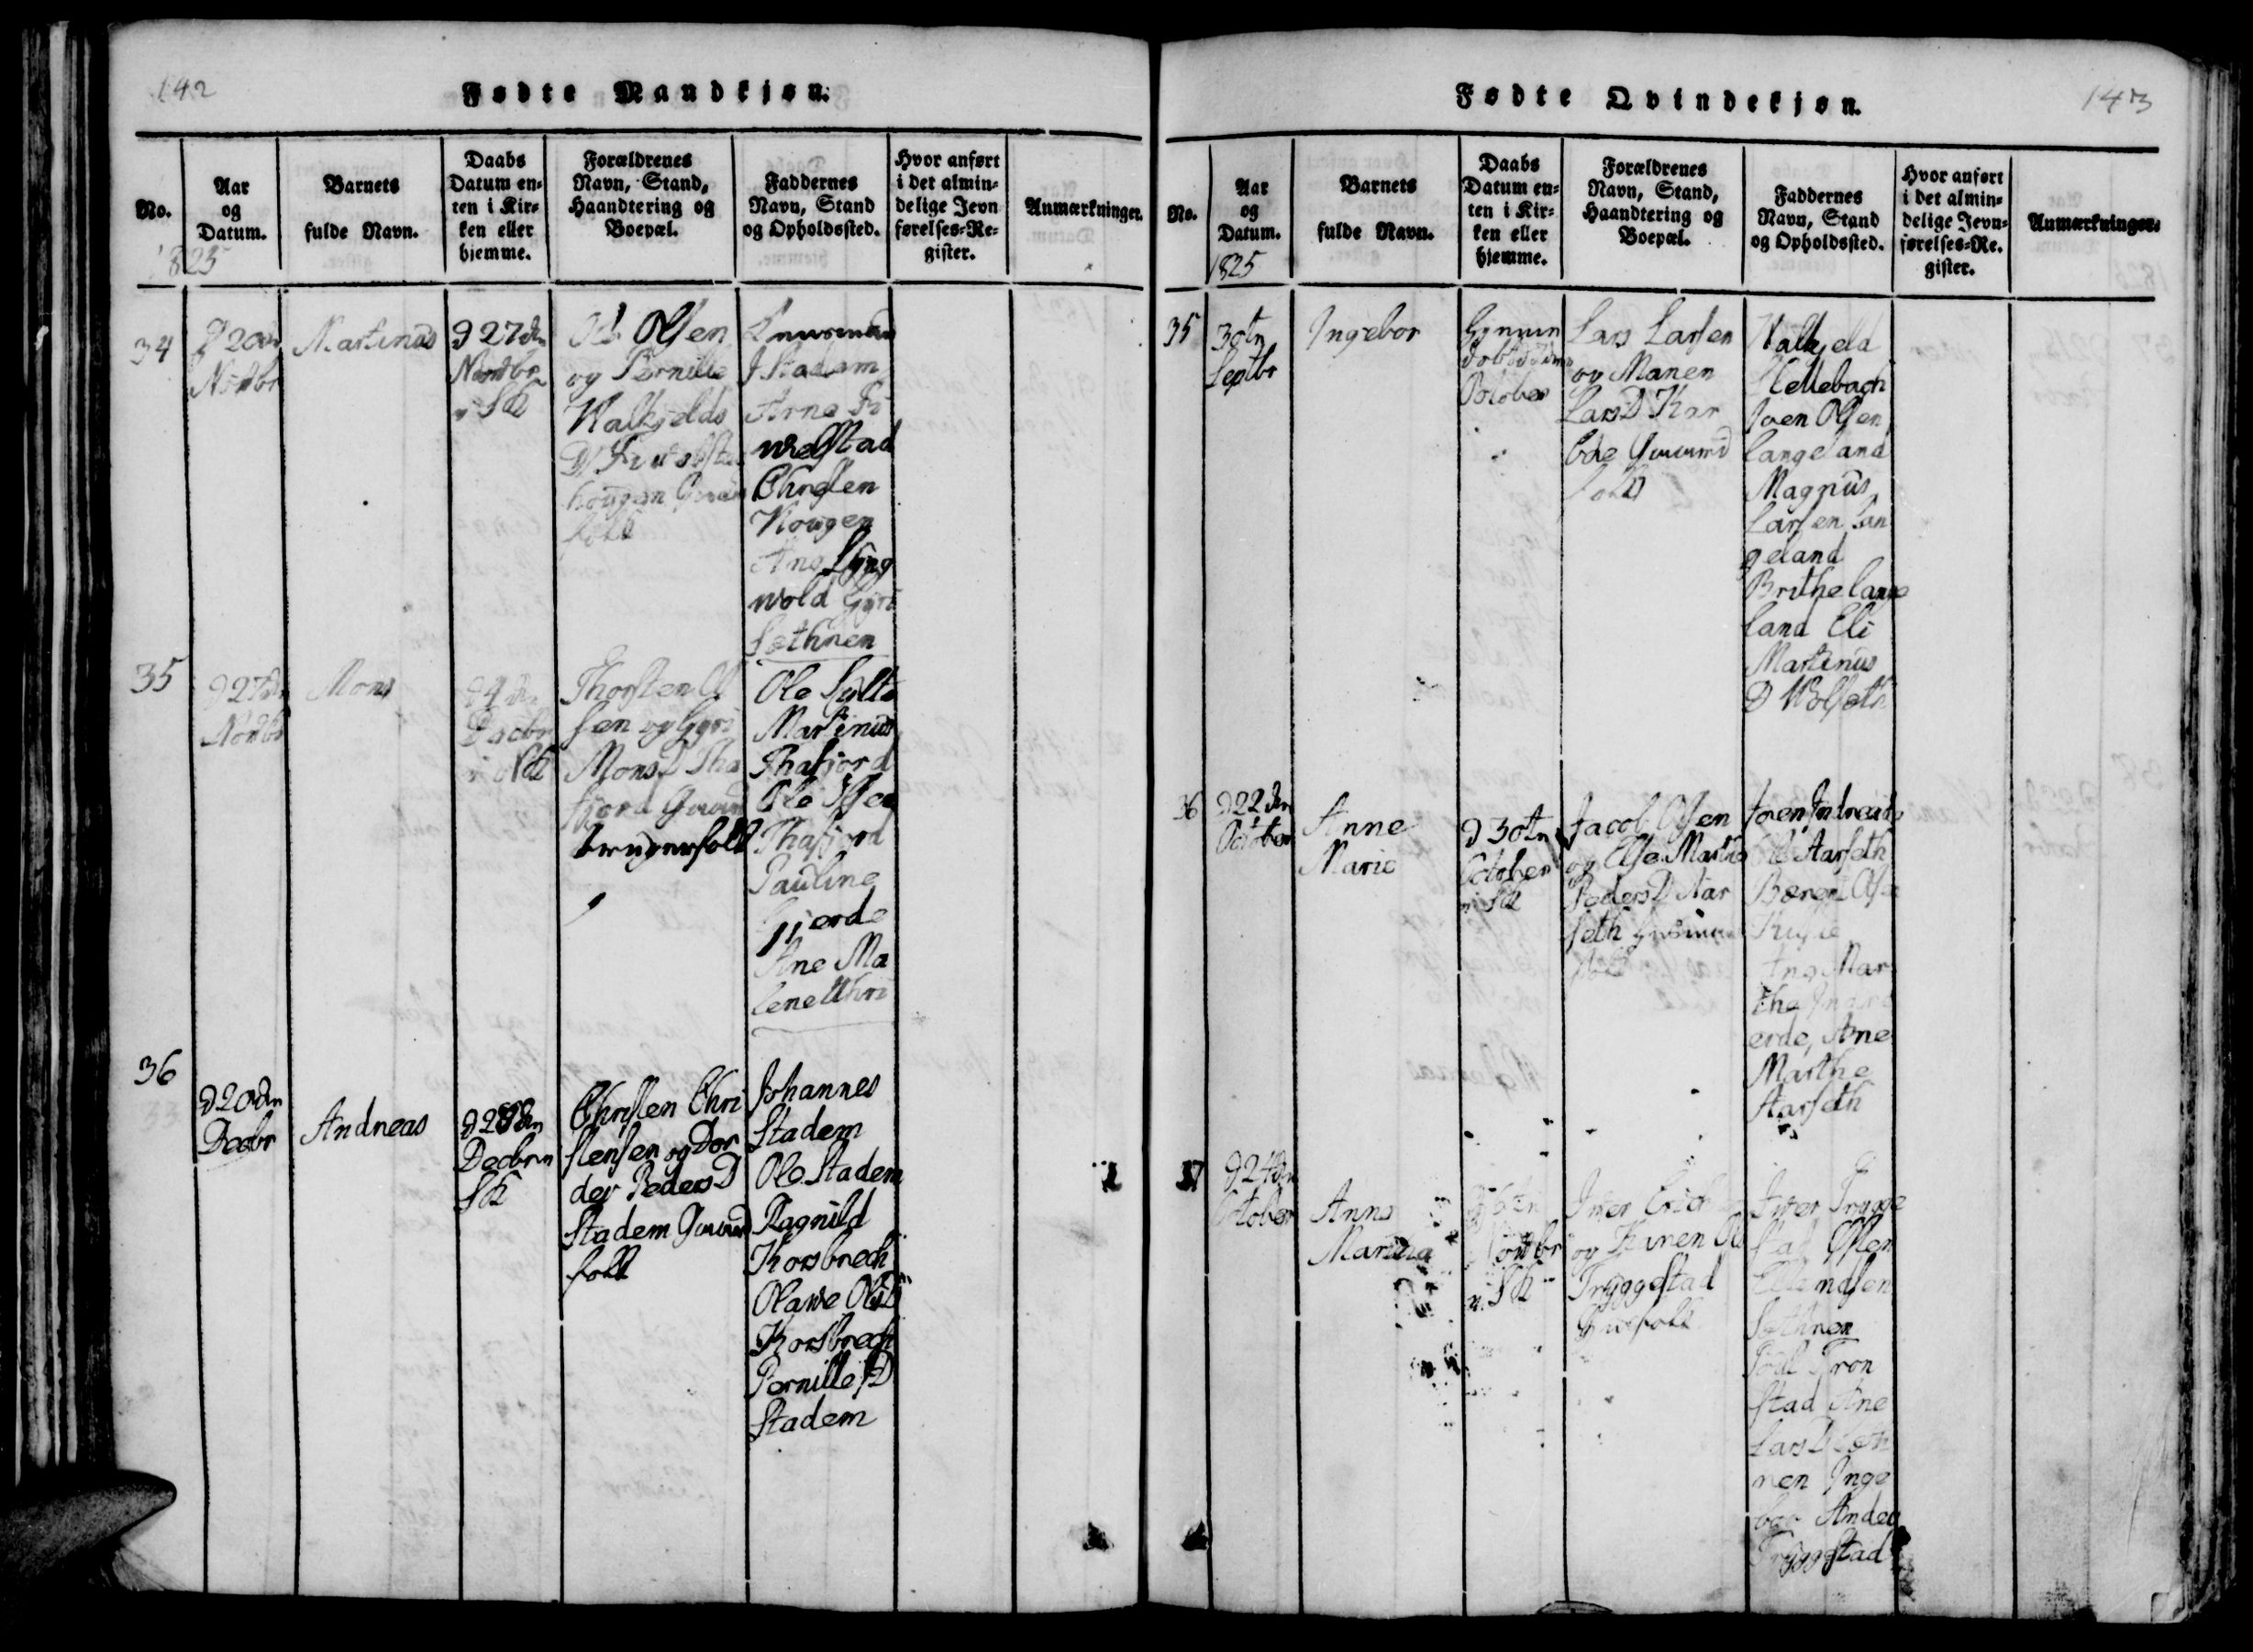 142
Fødte Mandkjøn.
No.
Aar
og
Datum.
Barnets
fulde Navn.
Daabs
Datum en-
ten i Kir-
ken eller
hjemme.
Forældrenes
Navn, Stand,
Haandtering og
Boepæl.
Faddernes
Navn, Stand
og Opholdssted.
Hvor anført
i det almin-
delige Jevn
førelses-Re-
gister.
Anmærkninger.
1825
34
D 20de
Novbr
Martinus
D 27de
Novbr
i SK
Ole Olsen
og Pernille
Walkjelds
D
folk
Stadem
Arne Fi
velstad
Christen
Hougen
Ane Lyng
wold Gyri
Sethnen
35
D 27de
Novbr
Mons
D 4de
Decbr
i NK
Thorsten Ol
sen og Gyri
Mons D Tha
fjord
brugerfolk
Ole Sylte
Martinus
Thafjord
Ole Olsen
Thafjord
Pauline
Gjerde
Ane Ma
lene Uhri
36
D 20de
Decbr
Andreas
D 28de
Decbr i
SK
Christen Chri
stensen og Dor
der Peders D
Stadem Gaard
folk
Johannes
Stadem
Ole Stadem
Ragnild
Korsbrech
Olave Ols D
Korsbrech
Pernille D
Stadem
143
Fødte Qvindekjøn.
No.
Aar
og
Datum.
Barnets
fulde Navn.
Daabs
Datum en-
ten i Kir-
ken eller
hjemme.
Forældrenes
Navn, Stand,
Haandtering og
Boepæl.
Faddernes
Navn, Stand
og Opholdssted.
Hvor anført
i det almin-
delige Jevn-
førelses-Re.
gister.
Anmærkninger.
1825
35
30te
Septbr
Ingebor
October
Lars Larsen
og Maren
Lars D Kar
bøe
folk
Walkjeld
Hellebach
Joen Olsen
Langeland
Magnus
Larsen Lan
geland
Brithe Lange
land Eli
Martinus
D Wolseth
36
D 22de
October
Anne
Marie
D 30te
October
i SK
Jacob Olsen
og Else Marie
Peders D Aar
seth
folk
Joen
Ole Aarseth
Beren Olsen
Ane Mar
the
erde, Ane
Marthe
Aarseth
37
D 24de
October
Anne
Martina
D 6te
Novbr
i SK
Iver Erich
og Karen Ols
Tryggestad
Huusfolk
Iver Trygge
stad Østen
Ellendsen
Sethnen
Poul Tron
stad Ane
Lars D Seth
nen Inge
bor Anders
Tryggstad